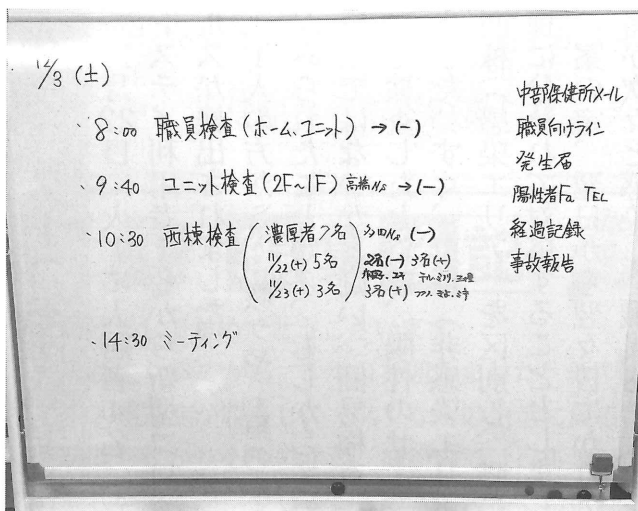 12/3 (土)
・8:00 職員検査(ホーム、ユニット) → (-)
・9:40 ユニット検査(2F~1F) 高橋Ns → (-)
・10:30 西棟検査 (濃厚者7名) Ns (-)
11/22(+) 5名 2名(-) 3名(+)
11/23(+) 3名 3名(+)
・14:30 ミーティング
中部保健所メール
職員向けライン
発生届
陽性者Fa TEL
経過記録
事故報告